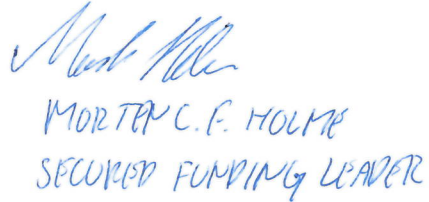 MORTEN C. F. HOLME
SECURED FUNDING LEADER